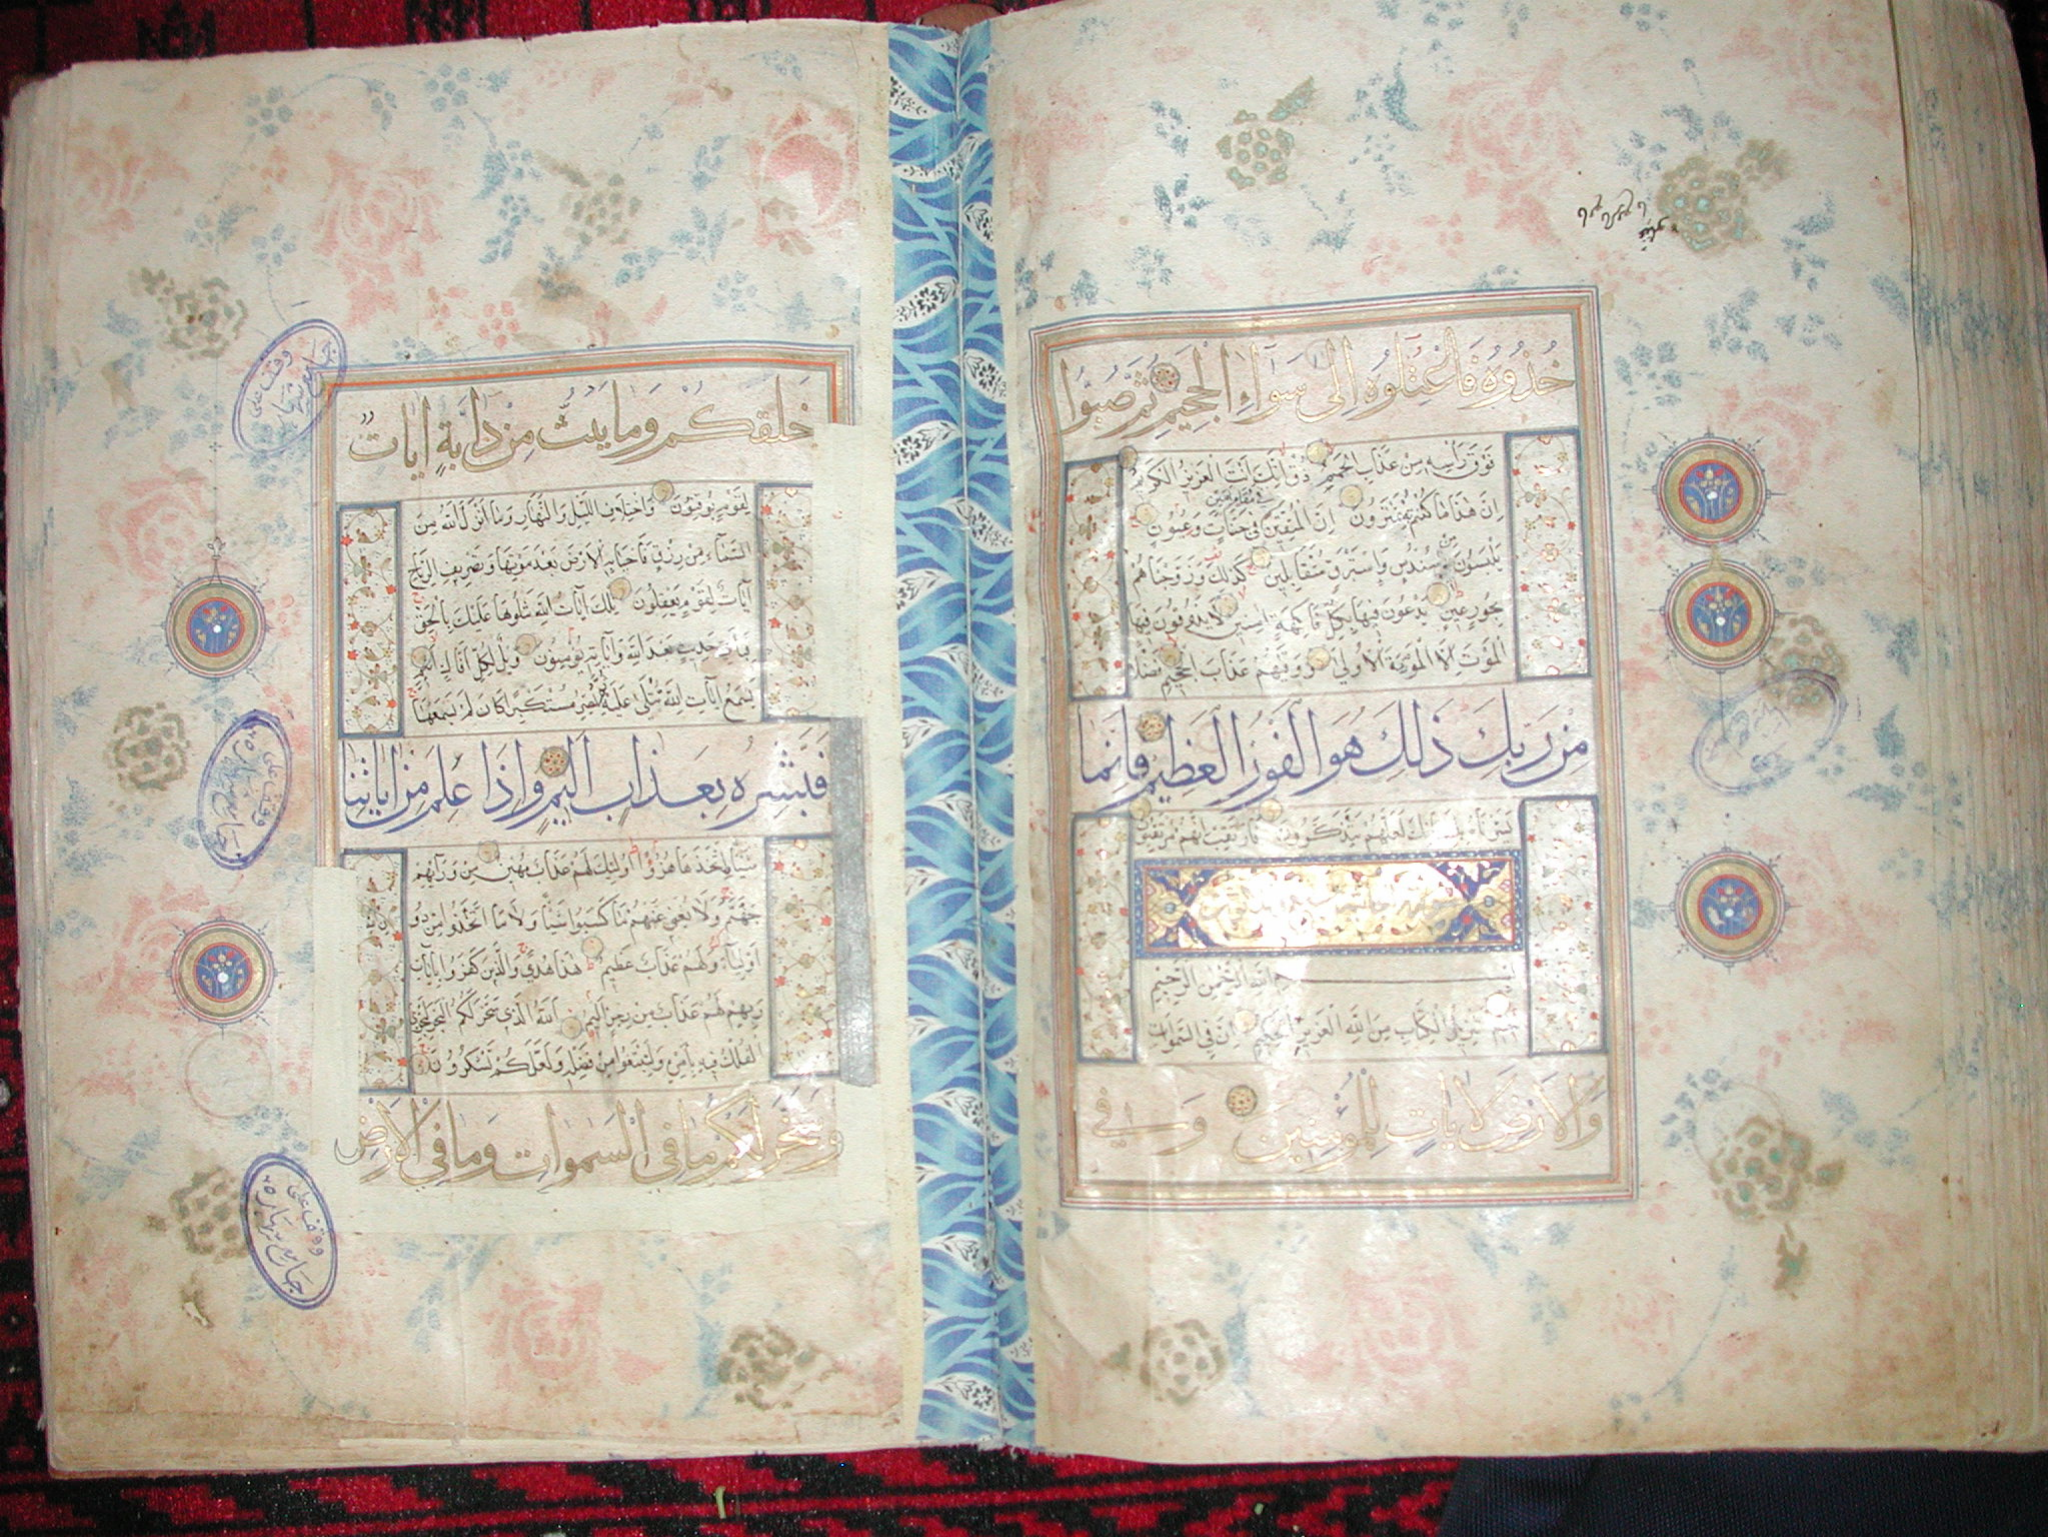 خُذُوهُ فَاعْتِلُوهُ إِلَى سَوَاءِ الْجَحِيمِ ثُمَّ صُبُّوا
فَوْقَ رَأْسِهِ مِنْ عَذَابِ الْحَمِيمِ ذُقْ إِنَّكَ أَنْتَ الْعَزِيزُ الْكَرِيمُ
إِنَّ هَذَا مَا كُنْتُمْ بِهِ تَمْتَرُونَ إِنَّ الْمُتَّقِينَ فِي مَقَامٍ أَمِينٍ فِي جَنَّاتٍ وَعُيُونٍ
يَلْبَسُونَ مِنْ سُنْدُسٍ وَإِسْتَبْرَقٍ مُتَقَابِلِينَ كَذَلِكَ وَزَوَّجْنَاهُمْ
بِحُورٍ عِينٍ يَدْعُونَ فِيهَا بِكُلِّ فَاكِهَةٍ آمِنِينَ لَا يَذُوقُونَ فِيهَا
الْمَوْتَ إِلَّا الْمَوْتَةَ الْأُولَى وَوَقَاهُمْ عَذَابَ الْجَحِيمِ فَضْلًا
مِنْ رَبِّكَ ذَلِكَ هُوَ الْفَوْزُ الْعَظِيمُ فَإِنَّمَا
يَسَّرْنَاهُ بِلِسَانِكَ لَعَلَّهُمْ يَتَذَكَّرُونَ فَارْتَقِبْ إِنَّهُمْ مُرْتَقِبُونَ
بسم الله الرحمن الرحيم
حم تَنْزِيلُ الْكِتَابِ مِنَ اللَّهِ الْعَزِيزِ الْحَكِيمِ إِنَّ فِي السَّمَوَاتِ
وَالْأَرْضِ لَآيَاتٍ لِلْمُؤْمِنِينَ وَفِي
خَلْقِكُمْ وَمَا يَبُثُّ مِنْ دَابَّةٍ آيَاتٌ
لِقَوْمٍ يُوقِنُونَ وَاخْتِلَافِ اللَّيْلِ وَالنَّهَارِ وَمَا أَنْزَلَ اللَّهُ مِنَ
السَّمَاءِ مِنْ رِزْقٍ فَأَحْيَا بِهِ الْأَرْضَ بَعْدَ مَوْتِهَا وَتَصْرِيفِ الرِّيَاحِ
آيَاتٌ لِقَوْمٍ يَعْقِلُونَ تِلْكَ آيَاتُ اللَّهِ نَتْلُوهَا عَلَيْكَ بِالْحَقِّ
فَبِأَيِّ حَدِيثٍ بَعْدَ اللَّهِ وَآيَاتِهِ يُؤْمِنُونَ وَيْلٌ لِكُلِّ أَفَّاكٍ أَثِيمٍ
يَسْمَعُ آيَاتِ اللَّهِ تُتْلَى عَلَيْهِ ثُمَّ يُصِرُّ مُسْتَكْبِرًا كَأَنْ لَمْ يَسْمَعْهَا
فَبَشِّرْهُ بِعَذَابٍ أَلِيمٍ وَإِذَا عَلِمَ مِنْ آيَاتِنَا
شَيْئًا اتَّخَذَهَا هُزُوًا أُولَئِكَ لَهُمْ عَذَابٌ مُهِينٌ مِنْ وَرَائِهِمْ
جَهَنَّمُ وَلَا يُغْنِي عَنْهُمْ مَا كَسَبُوا شَيْئًا وَلَا مَا اتَّخَذُوا مِنْ دُونِ اللَّهِ
أَوْلِيَاءَ وَلَهُمْ عَذَابٌ عَظِيمٌ هَذَا هُدًى وَالَّذِينَ كَفَرُوا بِآيَاتِ
رَبِّهِمْ لَهُمْ عَذَابٌ مِنْ رِجْزٍ أَلِيمٌ اللَّهُ الَّذِي سَخَّرَ لَكُمُ الْبَحْرَ لِتَجْرِيَ
الْفُلْكُ فِيهِ بِأَمْرِهِ وَلِتَبْتَغُوا مِنْ فَضْلِهِ وَلَعَلَّكُمْ تَشْكُرُونَ
وَسَخَّرَ لَكُمْ مَا فِي السَّمَوَاتِ وَمَا فِي الْأَرْضِ
وقف على
جامع
وقف على
جامع
وقف على
جامع